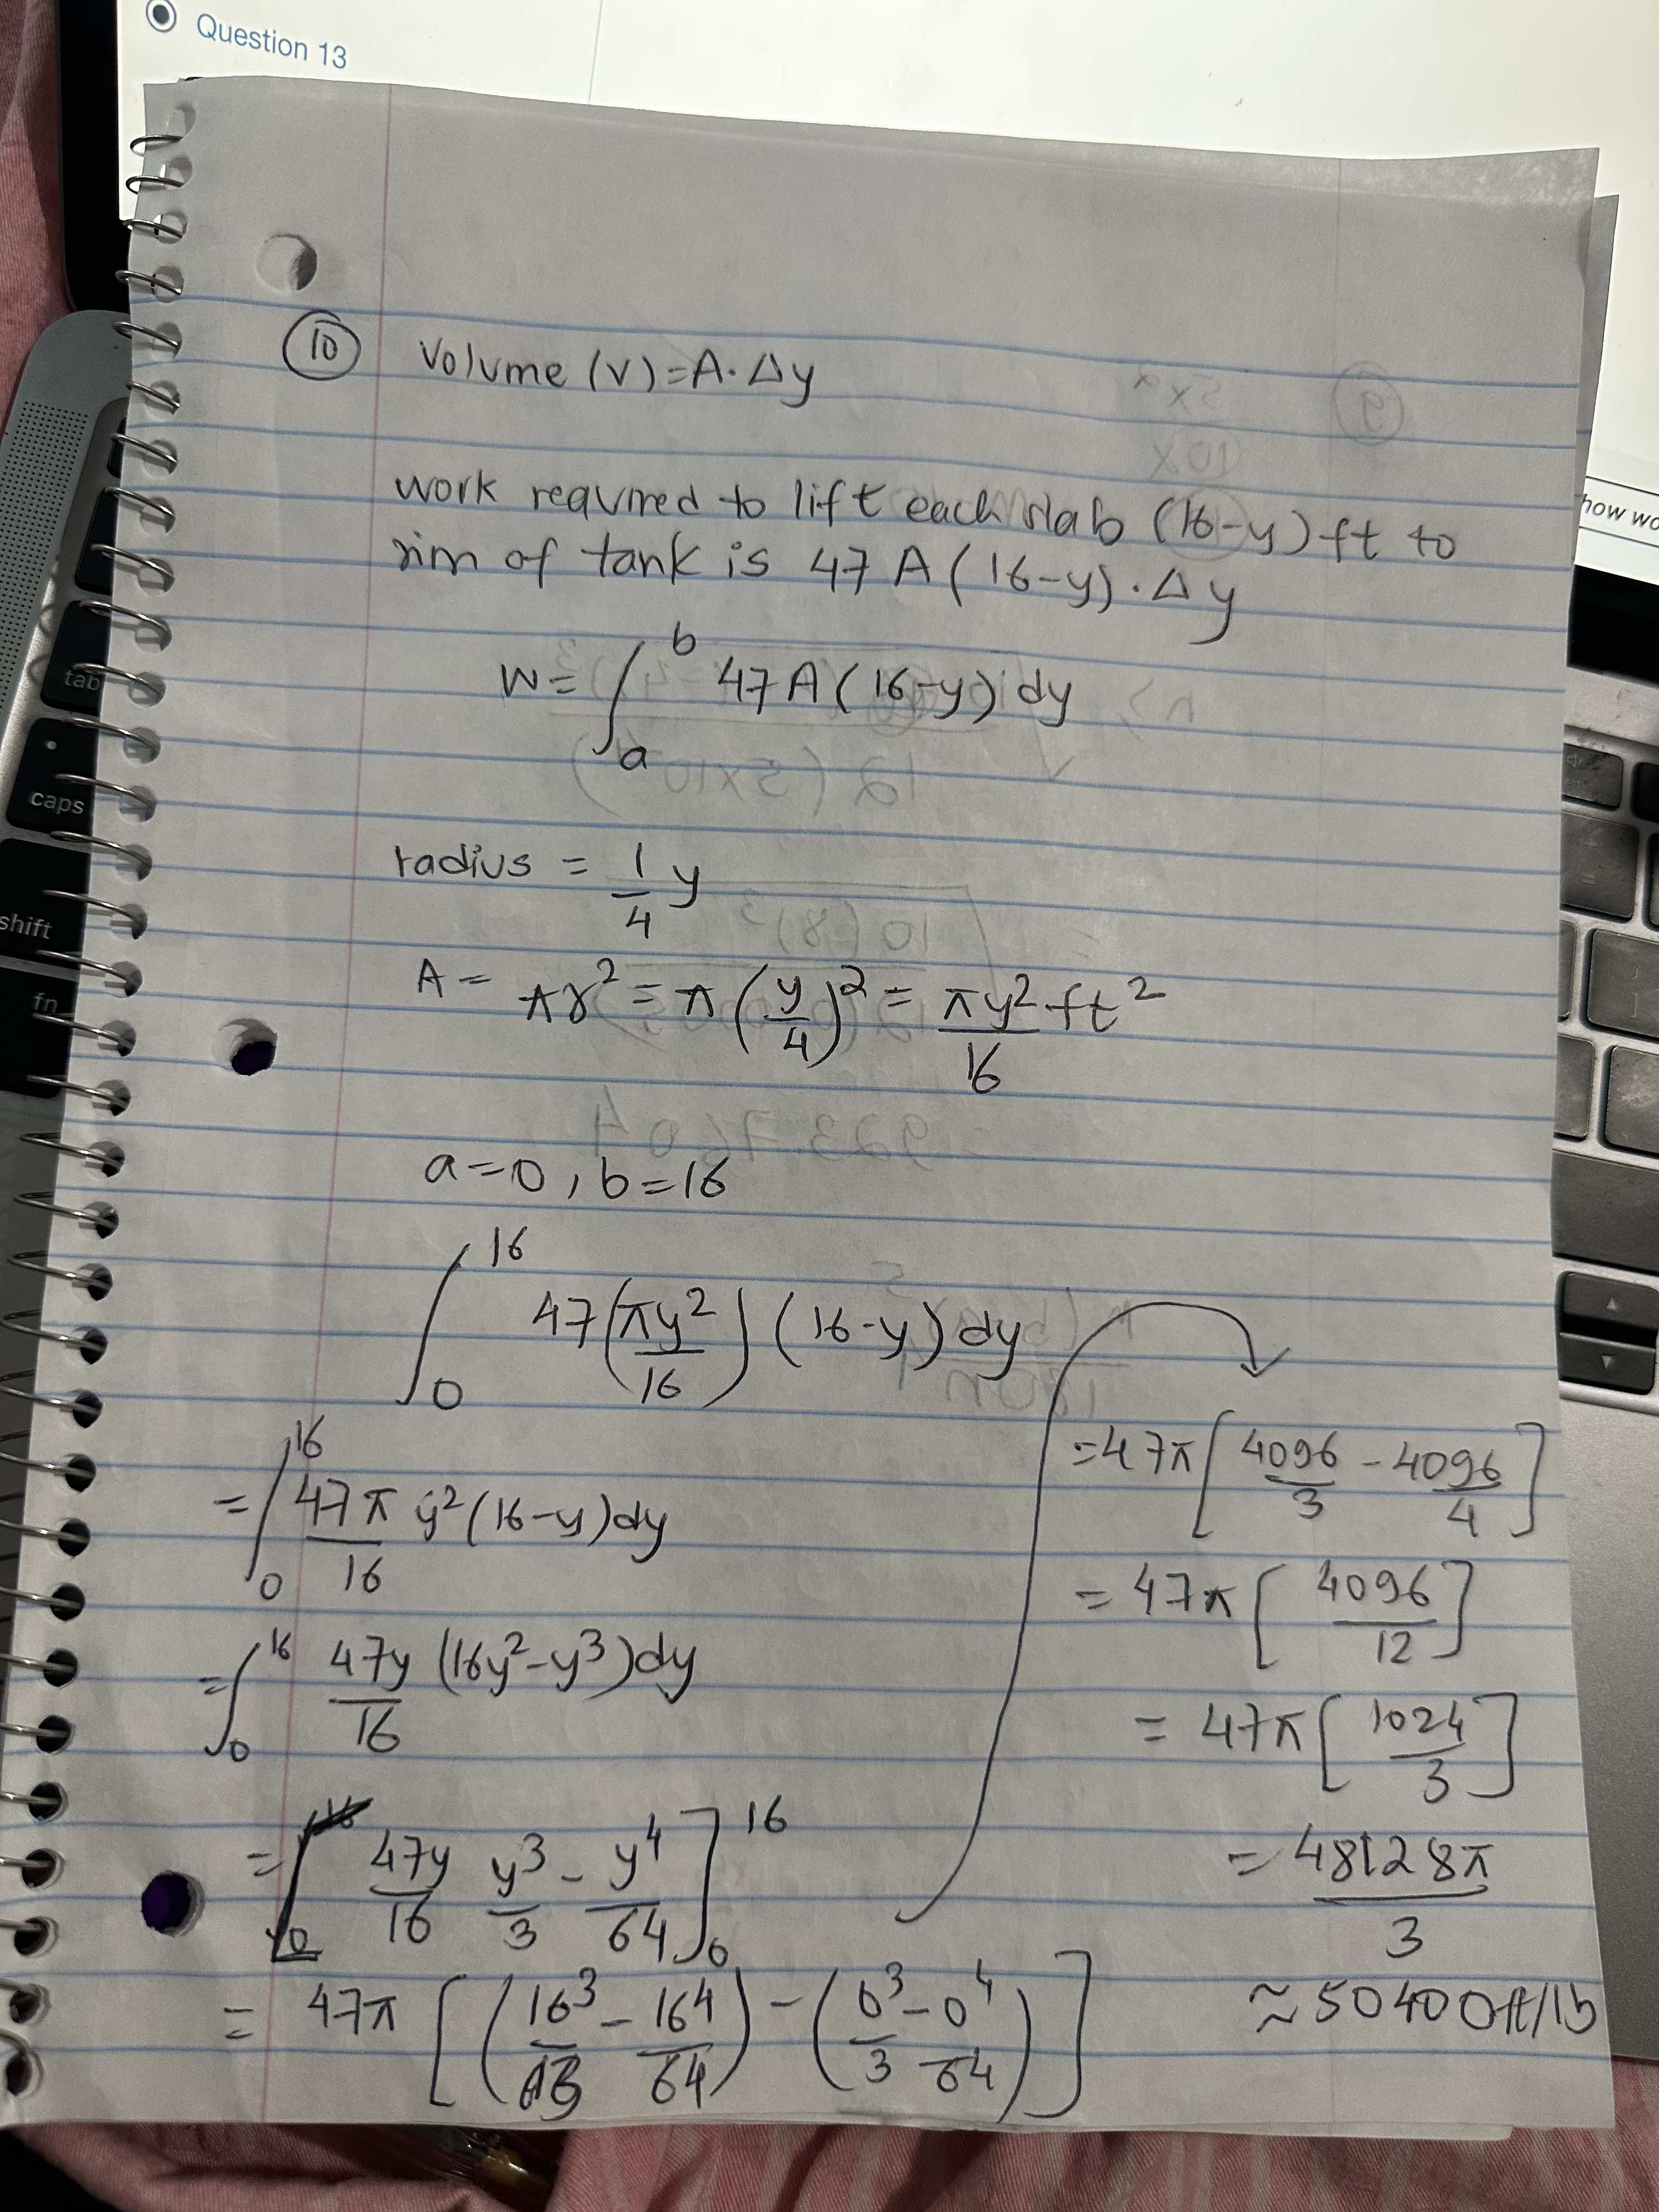 Question 13
how wo
tab
caps
shift
fn
⑩ Volume (V) = A · Δy
work required to lift each slab (16-y) ft to
rim of tank is 47 A (16-y) · Δy
W = ∫_a^b 47 A (16-y) dy
radius = 1/4 y
A = πr² = π (y/4)² = πy²/16 ft²
a = 0, b = 16
∫_0^16 47 (πy²/16) (16-y) dy
= ∫_0^16 47π/16 y² (16-y) dy
= ∫_0^16 47y/16 (16y² - y³) dy
= [47y/16 y³/3 - y⁴/64]_0^16
= 47π [(16³/3 - 16⁴/64) - (0³/3 - 0⁴/64)]
= 47π [4096/3 - 4096/4]
= 47π [4096/12]
= 47π [1024/3]
= 48128π/3
≈ 50400 ft/lb